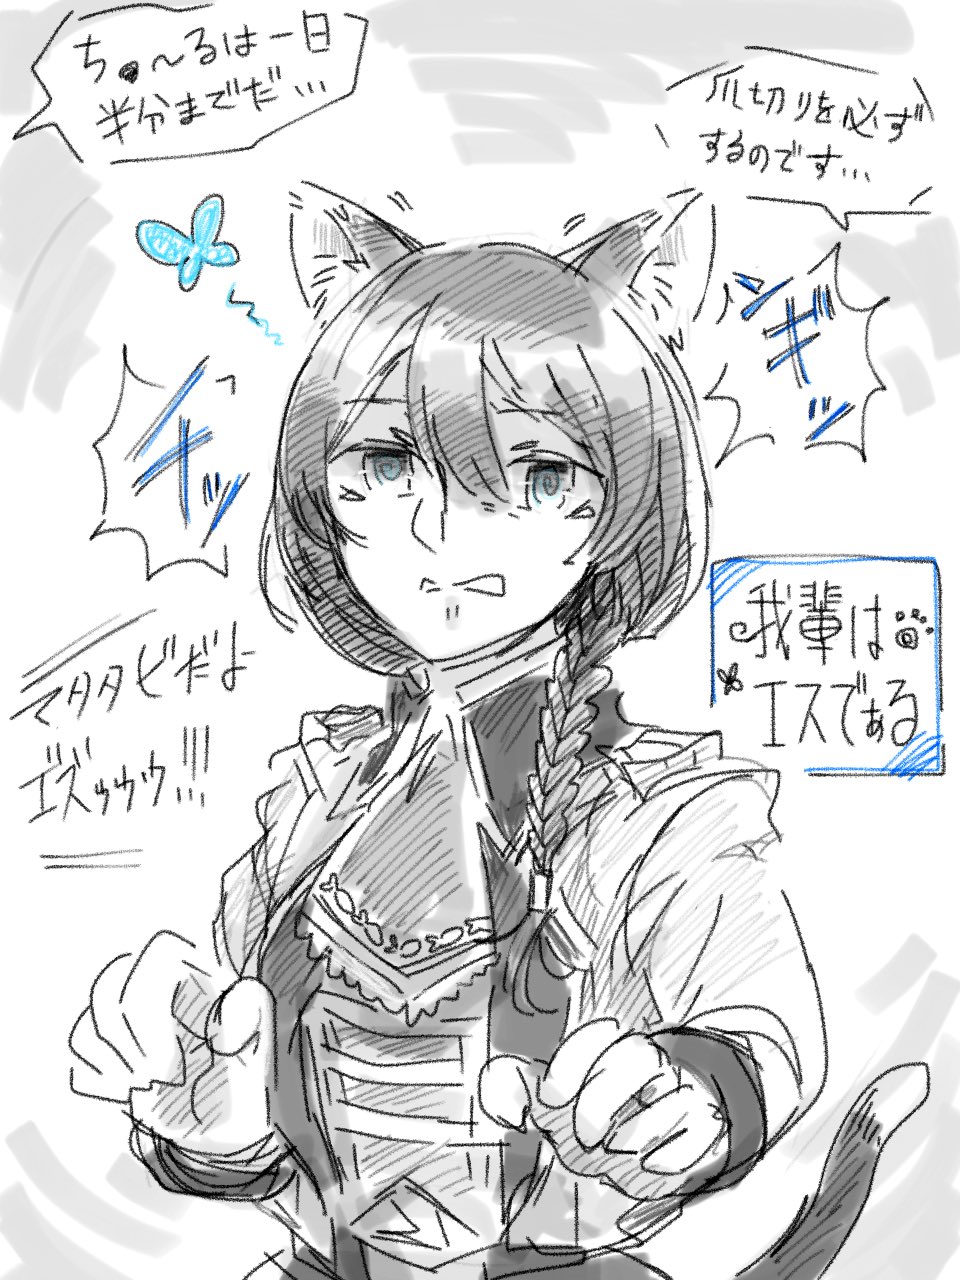 ち●〜るは一日
半分までだ…
爪切りを必ず
するのです…
ギッ
イッ
マタタビだよ
エズゥゥゥ!!!
我輩は
エスでぁる